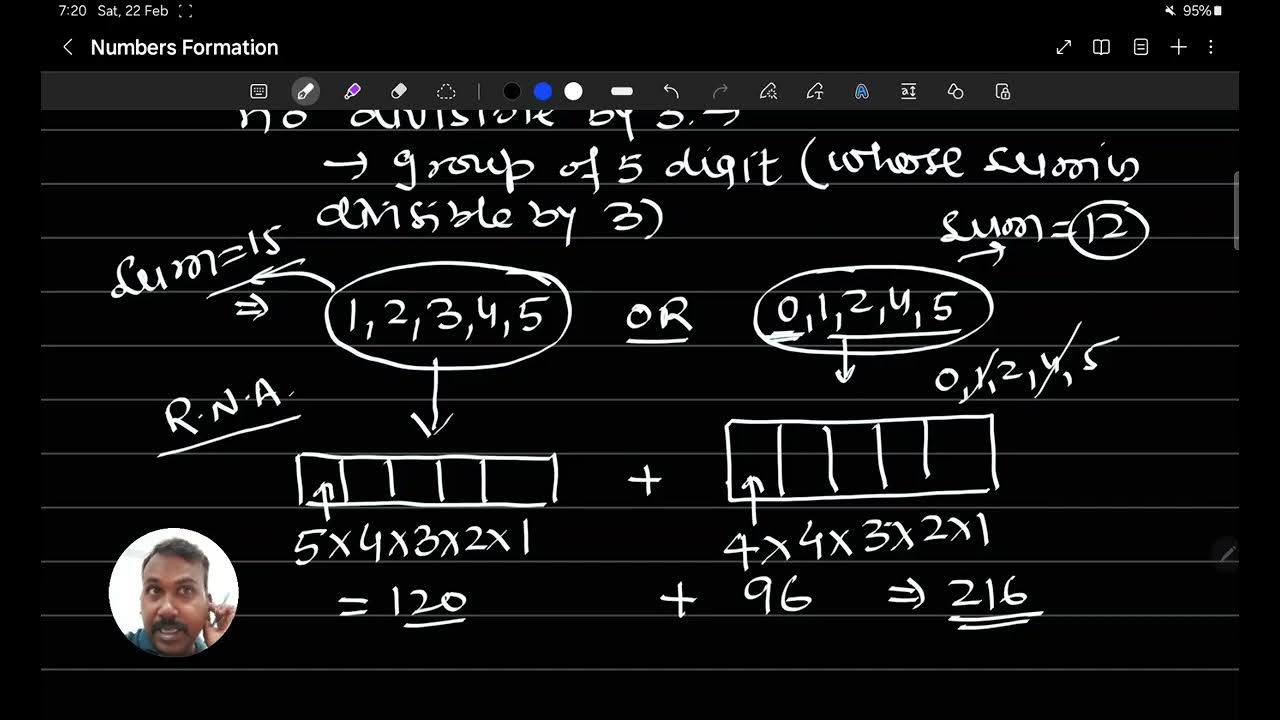 7:20 Sat, 22 Feb 95%
Numbers Formation
no divisible by 3. →
→ group of 5 digit (whose sum is
divisible by 3)
Sum=15
sum=12
1, 2, 3, 4, 5 OR 0, 1, 2, 4, 5
0, 1, 2, 4, 5
R.N.A.
+
5×4×3×2×1 4×4×3×2×1
= 120 + 96 ⇒ 216